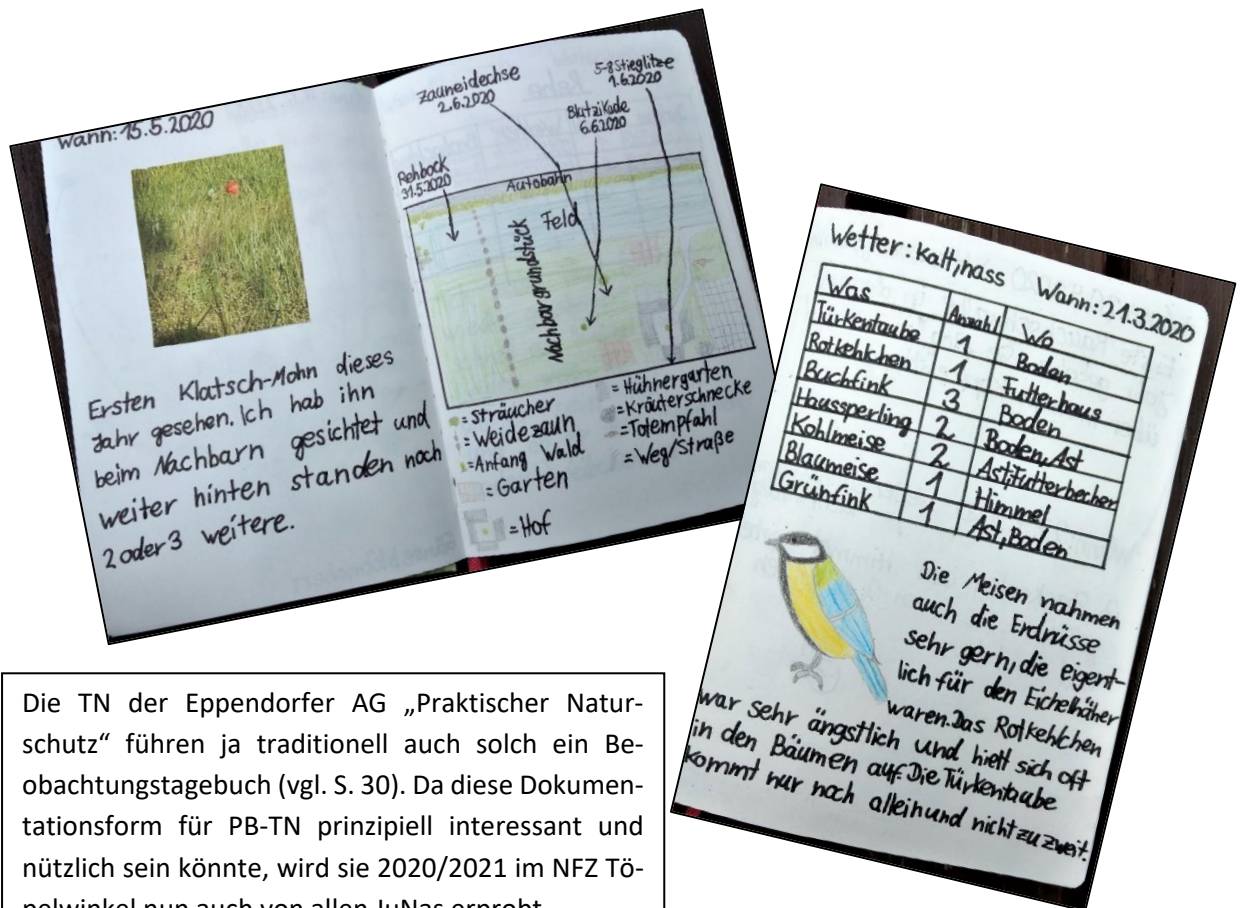 Wann: 15.5.2020
Ersten Klatsch-Mohn dieses
Jahr gesehen. Ich hab ihn
beim Nachbarn gesichtet und
weiter hinten standen noch
2 oder 3 weitere.
Zauneidechse
2.6.2020
5-8 Stieglitze
1.6.2020
Blutzikade
6.6.2020
Rehbock
31.5.2020
Autobahn
Feld
Nachbargrundstück
= Sträucher
= Weidezaun
= Anfang Wald
= Garten
= Hof
= Hühnergarten
= Kräuterschnecke
= Totempfahl
= Weg/Straße
Wetter: kalt, nass Wann: 21.3.2020
Was Anzahl Wo
Türkentaube 1 Boden
Rotkehlchen 1 Futterhaus
Buchfink 3 Boden
Haussperling 2 Boden, Ast
Kohlmeise 2 Ast, Futterbecher
Blaumeise 1 Himmel
Grünfink 1 Ast, Boden
Die Meisen nahmen
auch die Erdnüsse
sehr gern, die eigent-
lich für den Eichelhäher
waren. Das Rotkehlchen
war sehr ängstlich und hielt sich oft
in den Bäumen auf. Die Türkentaube
kommt nur noch allein und nicht zu zweit.
Die TN der Eppendorfer AG „Praktischer Natur-
schutz“ führen ja traditionell auch solch ein Be-
obachtungstagebuch (vgl. S. 30). Da diese Dokumen-
tationsform für PB-TN prinzipiell interessant und
nützlich sein könnte, wird sie 2020/2021 im NFZ Tö-
pelwinkel nun auch von allen JuNas erprobt.